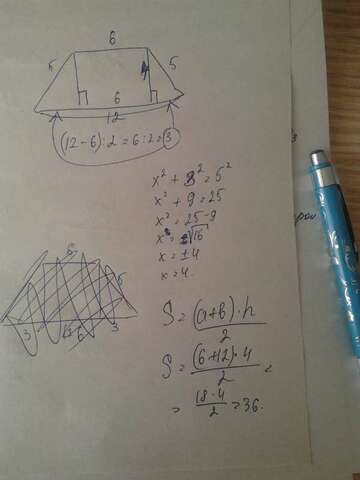 6
5 5
6
12
(12-6):2=6:2=3
x²+3²=5²
x²+9=25
x²=25-9
x=±√16
x=±4
x=4.
6
5
3 6 3
S=(a+b)·h/2
S=(6+12)·4/2=
=18·4/2=36.